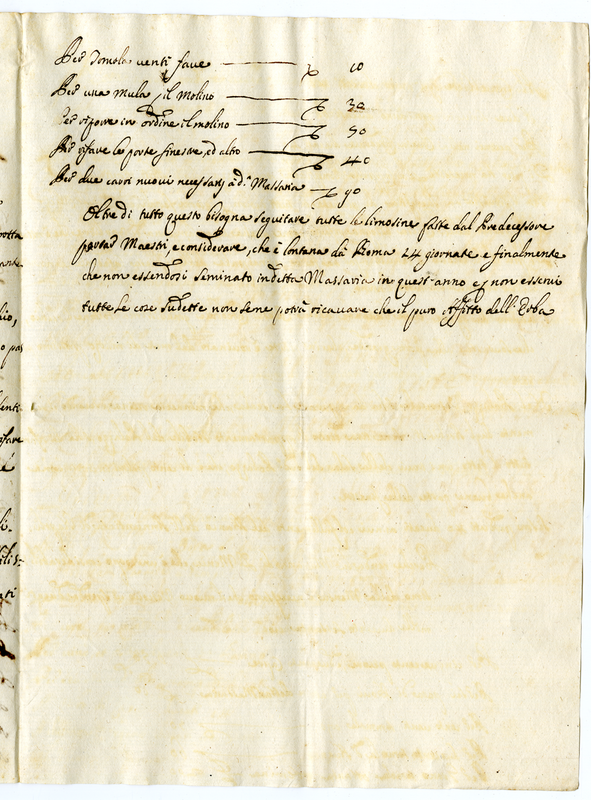 Per Tomola venti fave 10
Per una Mula p il Molino 30
Per riporre in ordine il molino 50
Per rifare le porte finestre, ed altro 40
Per due carri nuovi necessarj a d.ª Massaria 90
Oltre di tutto questo bisogna seguitare tutte le limosine fatte dal Predecessore
Maestri, e considerare, che è lontana da Roma 24 giornate e finalmente
che non essendosi seminato in detta Massaria in quest'anno e p non esservi
tutte le cose sudette non se ne potrà ricavare che il puro Affitto dell'Erba